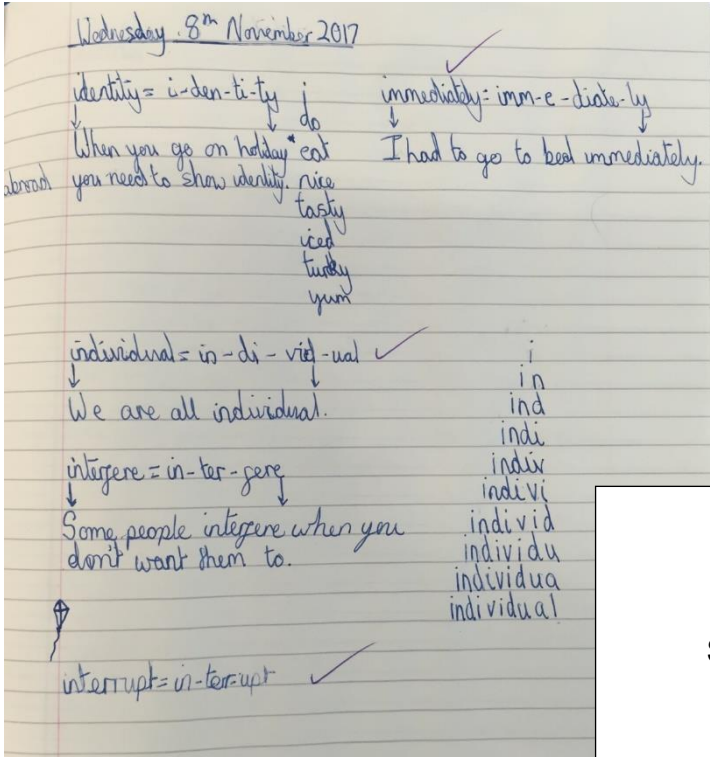 Wednesday 8th November 2017
identity = i-den-ti-ty
When you go on holiday*
abroad
you need to show identity.
i
do
eat
nice
tasty
iced
turky
yum
immediately = imm-e-diate-ly
I had to go to bed immediately.
individual = in-di-vid-ual
We are all individual.
i
in
ind
indi
indiv
indivi
individ
individu
individua
individual
interfere = in-ter-fere
Some people interfere when you
don't want them to.
interrupt = in-ter-upt